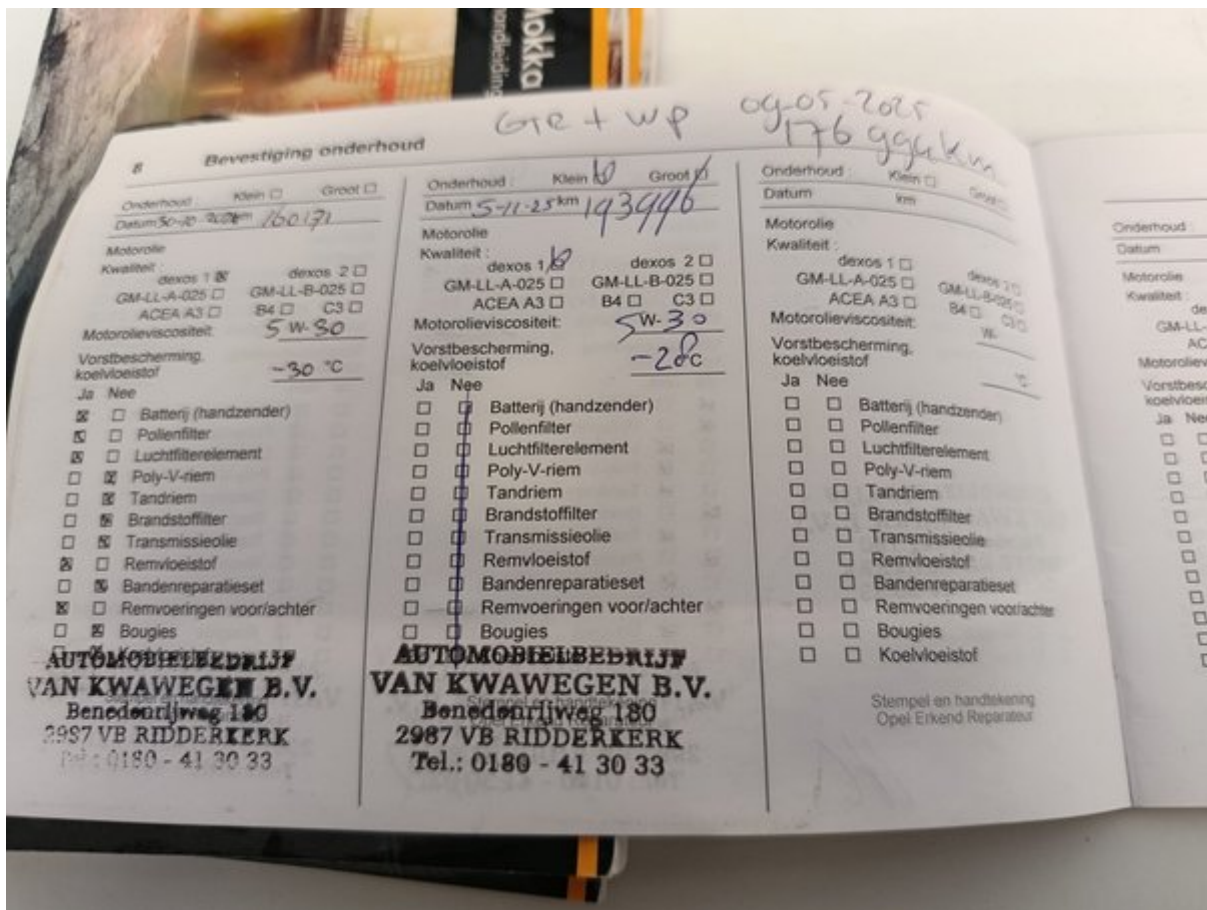 Mokka
GTR + WP 09-05-2025
176 994 km
8 Bevestiging onderhoud
Onderhoud : Klein □ Groot □
Datum 30-10- km 160171
Motorolie
Kwaliteit :
dexos 1 ☒ dexos 2 □
GM-LL-A-025 □ GM-LL-B-025 □
ACEA A3 □ B4 □ C3 □
Motorolieviscositeit: 5 W-30
Vorstbescherming,
koelvloeistof -30 °C
Ja Nee
☒ □ Batterij (handzender)
☒ □ Pollenfilter
☒ □ Luchtfilterelement
□ ☒ Poly-V-riem
□ ☒ Tandriem
□ ☒ Brandstoffilter
□ ☒ Transmissieolie
☒ □ Remvloeistof
□ ☒ Bandenreparatieset
☒ □ Remvoeringen voor/achter
□ ☒ Bougies
AUTOMOBIELBEDRIJF
VAN KWAWEGEN B.V.
Benedenrijweg 180
2987 VB RIDDERKERK
Tel.: 0180 - 41 30 33
Onderhoud : Klein ☒ Groot
Datum 5-11-25 km 193996
Motorolie
Kwaliteit :
dexos 1 ☒ dexos 2 □
GM-LL-A-025 □ GM-LL-B-025 □
ACEA A3 □ B4 □ C3 □
Motorolieviscositeit: 5W-30
Vorstbescherming,
koelvloeistof -28 °C
Ja Nee
□ □ Batterij (handzender)
□ □ Pollenfilter
□ □ Luchtfilterelement
□ □ Poly-V-riem
□ □ Tandriem
□ □ Brandstoffilter
□ □ Transmissieolie
□ □ Remvloeistof
□ □ Bandenreparatieset
□ □ Remvoeringen voor/achter
□ □ Bougies
AUTOMOBIELBEDRIJF
VAN KWAWEGEN B.V.
Stempel en handtekening
Benedenrijweg 180
Opel Erkend Reparateur
2987 VB RIDDERKERK
Tel.: 0180 - 41 30 33
Onderhoud : Klein □ Groot □
Datum km
Motorolie
Kwaliteit :
dexos 1 □ dexos 2 □
GM-LL-A-025 □ GM-LL-B-025 □
ACEA A3 □ B4 □ C3 □
Motorolieviscositeit: W-
Vorstbescherming,
koelvloeistof °C
Ja Nee
□ □ Batterij (handzender)
□ □ Pollenfilter
□ □ Luchtfilterelement
□ □ Poly-V-riem
□ □ Tandriem
□ □ Brandstoffilter
□ □ Transmissieolie
□ □ Remvloeistof
□ □ Bandenreparatieset
□ □ Remvoeringen voor/achter
□ □ Bougies
□ □ Koelvloeistof
Stempel en handtekening
Opel Erkend Reparateur
Onderhoud :
Datum
Motorolie
Kwaliteit :
GM-LL-
Ja Nee